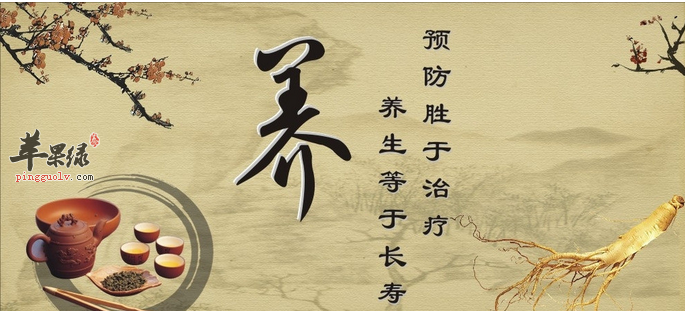 养
预防胜于治疗
养生等于长寿
苹果绿
pingguolv.com